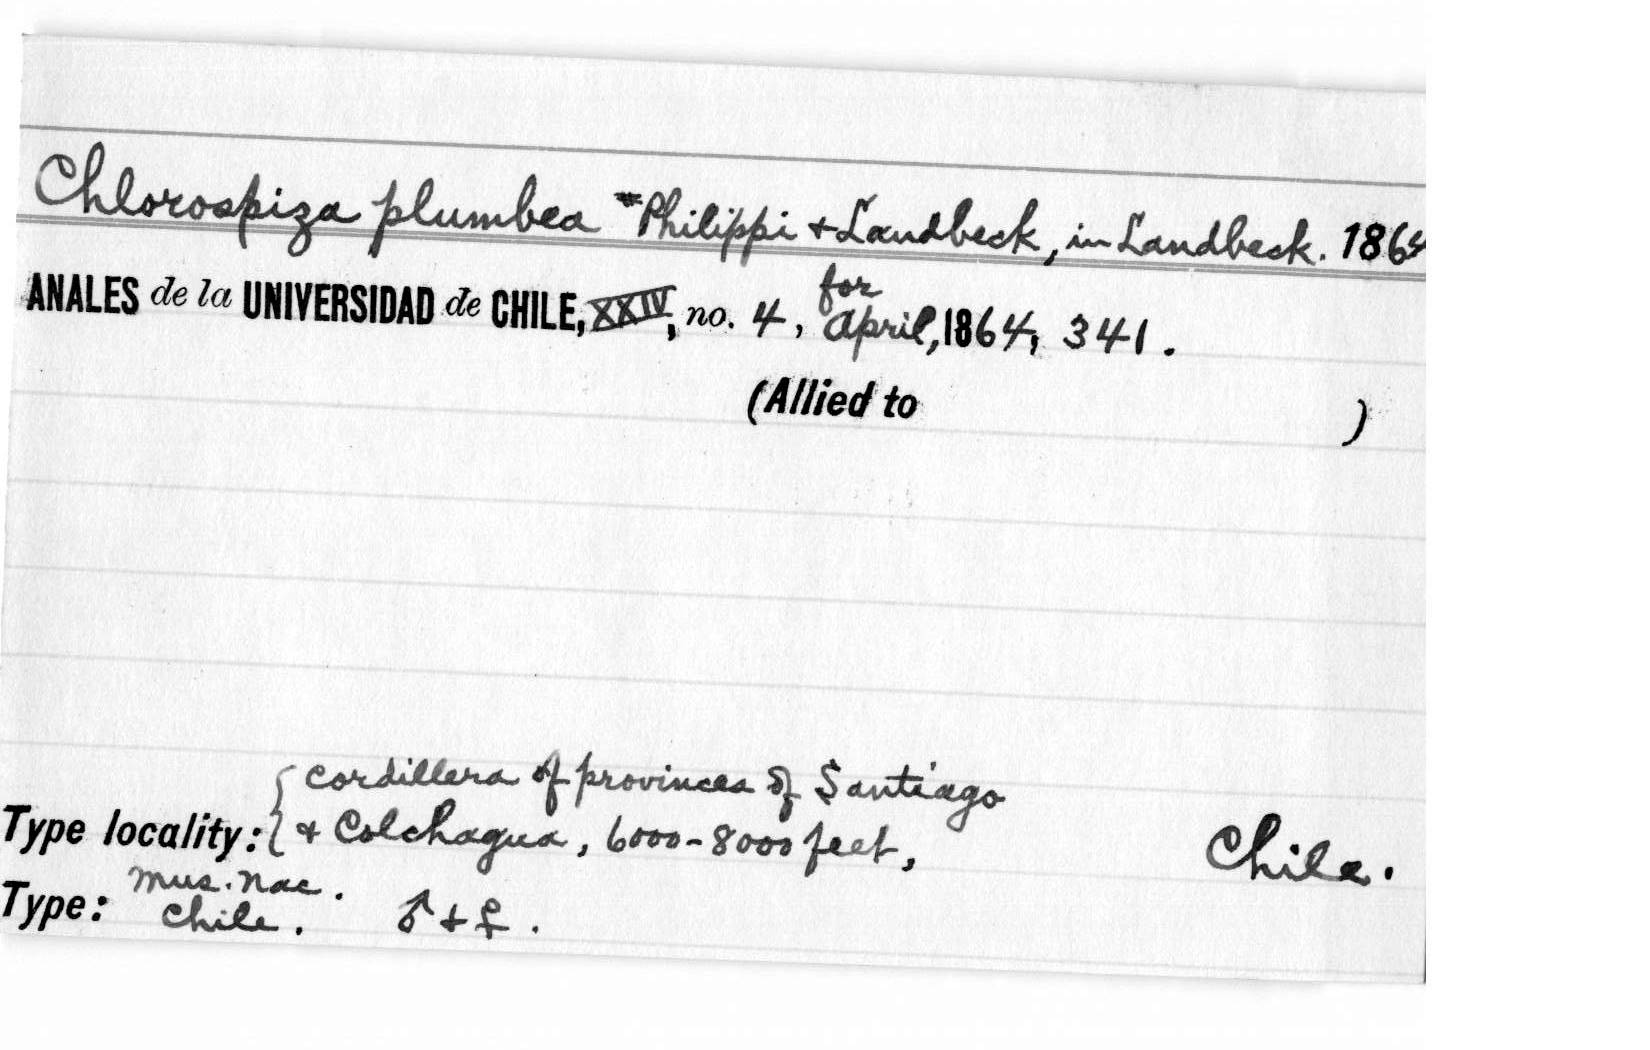 Chlorospiza plumbea Philippi + Landbeck, in Landbeck. 1864
ANALES de la UNIVERSIDAD de CHILE, XXIV, no. 4, for April, 1864, 341.
(Allied to )
cordillera of provinces of Santiago
Type locality: { + Colchagua, 6000-8000 feet, Chile.
Mus. Nac.
Type: Chile. ♂ + ♀.